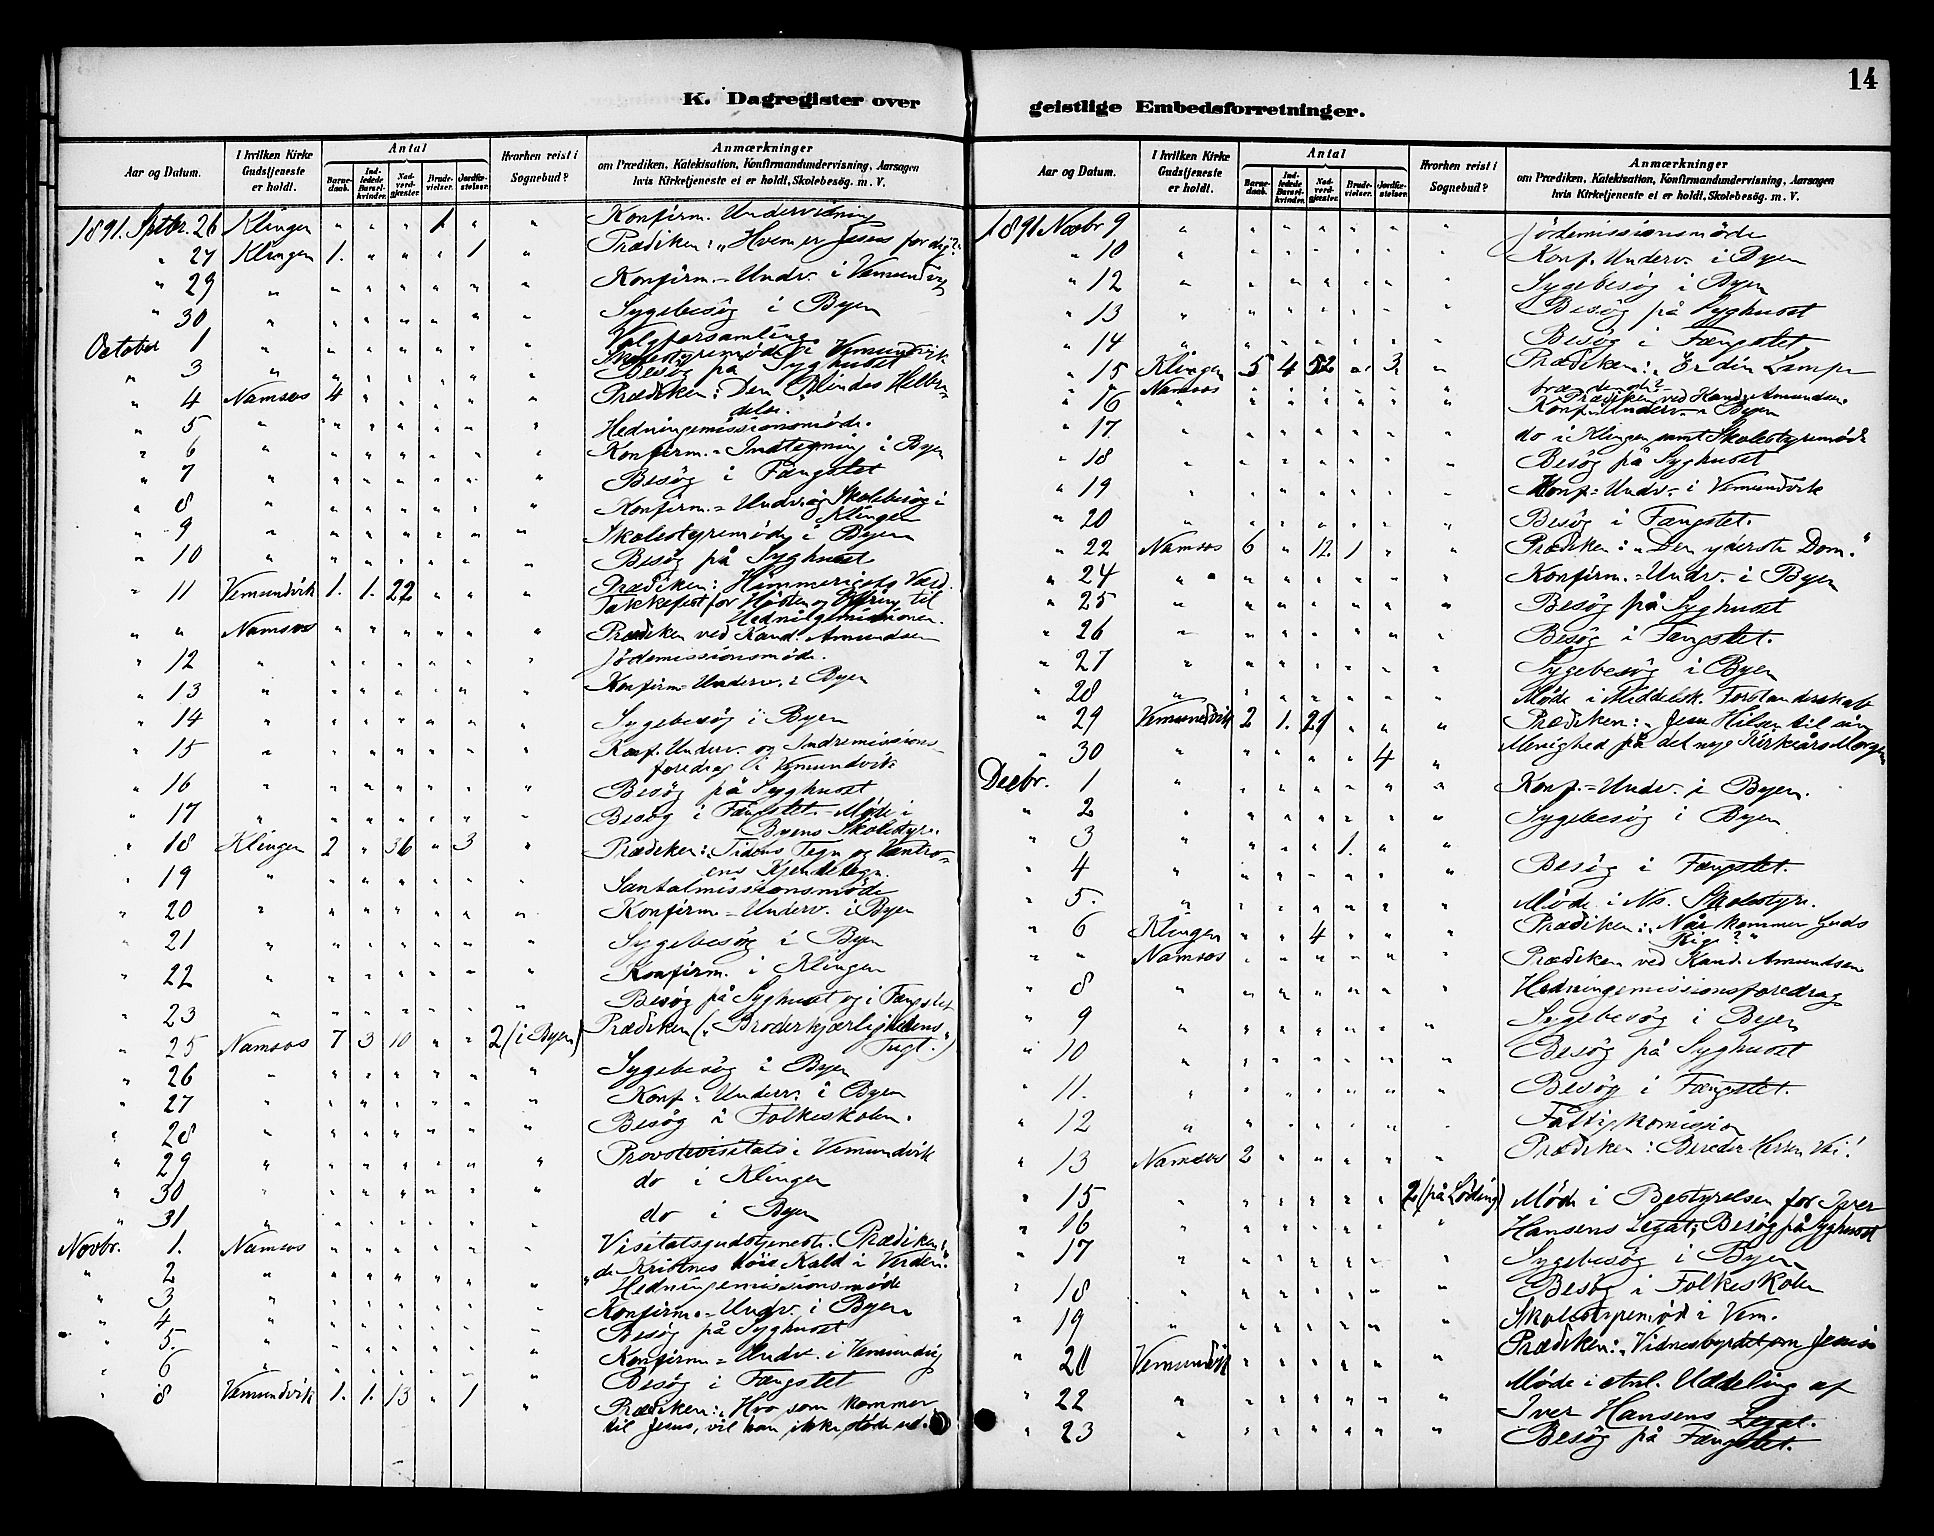 14
K. Dagregister over geistlige Embedsforretninger.
Aar og Datum. | I hvilken Kirke Gudstjeneste er holdt. | Antal | Barnedaab. | Indledede Barselkvinder. | Nadverdgjester. | Brudevielser. | Jordfæstelser. | Hvorhen reist i Sognebud? | Anmærkninger om Prædiken, Katekisation, Konfirmandundervisning, Aarsagen hvis Kirketjeneste ei er holdt, Skolebesøg. m. V.
1891. Sptbr. 26 Klingen " " " 1 " " Konfirm. Undervisning
" 27 Klingen 1. " " " 1 " Prædiken: "Hvem er Jesus for dig?"
" 29 " " " " " " " Konfirm.-Undv. i Vemundvik
" 30 " " " " " " " Sygebesøg i Byen
October 1 " " " " " " " Valgforsamling
Skolestyremøde i Vemundvik
" 3 " " " " " " " Besøg på Syghuset
" 4 Namsos 4 " " " " " Prædiken: Den Blindes Helbredelse.
" 5 " " " " " " " Hedningemissionsmøde.
" 6 " " " " " " " Konfirm.-Indtegning i Byen
" 7 " " " " " " " Besøg i Fængslet
" 8 " " " " " " " Konfirm.-Undv. og Skolebesøg i Klingen
" 9 " " " " " " " Skolestyremøde i Byen
" 10 " " " " " " " Besøg på Syghuset
" 11 Vemundvik 1. 1. 22 " " " Prædiken: Himmerigets Værd.
Takkefest for Høsten og Offring til Hedningemissionen.
" " Namsos " " " " " " Prædiken ved Kand. Amundsen
" 12 " " " " " " " Jødemissionsmøde.
" 13 " " " " " " " Konfirm-Underv. i Byen
" 14 " " " " " " " Sygebesøg i Byen
" 15 " " " " " " " Konf. Underv. og Indremissionsforedrag i Vemundvik
" 16 " " " " " " " Besøg på Syghuset
" 17 " " " " " " " Besøg i Fængslet. Møde i Byens Skolestyre.
" 18 Klingen 2 " 36 " 3 " Prædiken: "Tidens Tegn og Vantroens Kjendetegn.
" 19 " " " " " " " Santalmissionsmøde
" 20 " " " " " " " Konfirm-Underv. i Byen
" 21 " " " " " " " Sygebesøg i Byen
" 22 " " " " " " " Konfirm. i Klingen
" 23 " " " " " " " Besøg på Syghuset og i Fængslet
" 25 Namsos 7 3 10 " " 2 (i Byen) Prædiken ("Broderkjærlighedens Tugt.")
" 26 " " " " " " " Sygebesøg i Byen
" 27 " " " " " " " Konf-Underv. i Byen
" 28 " " " " " " " Besøg i Folkeskolen.
" 29 " " " " " " " Provstevisitats i Vemundvik
" 30 " " " " " " " do i Klingen
" 31 " " " " " " " do i Byen
Novbr. 1. Namsos " " " " " " Visitatsgudstjeneste. Prædiken:
" 2 " " " " " " " "de Kristnes høie Kald i Verden."
" 3 " " " " " " " Hedningemissionsmøde
" 4 " " " " " " " Konfirm.-Undv. i Byen
" 5. " " " " " " " Besøg på Syghuset
" 6 " " " " " " " Konfirm-Undv. i Vemundvig
Besøg i Fængslet
" 8 Vemundvik 1. 1. 13 " 1 " Prædiken: "Hvo som kommer
til Jesus, vil han ikke støde ud."
Aar og Datum. | I hvilken Kirke Gudstjeneste er holdt. | Antal | Barnedaab. | Indledede Barselkvinder. | Nadverdgjester. | Brudevielser. | Jordfæstelser. | Hvorhen reist i Sognebud? | Anmærkninger om Prædiken, Katekisation, Konfirmandundervisning, Aarsagen hvis Kirketjeneste ei er holdt, Skolebesøg. m. V.
1891 Novbr 9 " " " " " " " Jødemissionsmøde
" 10 " " " " " " " Konf. Underv. i Byen
" 12 " " " " " " " Sygebesøg i Byen
" 13 " " " " " " " Besøg på Syghuset
" 14 " " " " " " " Besøg i Fængslet,
" 15 Klingen 5 4 52 " 3 " Prædiken: "Er din Lampe brændende?"
Namsos " " " " " " Prædiken ved Kand. Amundsen
" 16 " " " " " " " Konf-Underv. i Byen
" 17 " " " " " " " do i Klingen samt Skolestyremøde
" 18 " " " " " " " Besøg på Syghuset
" 19 " " " " " " " Konf-Undv. i Vemundvik
" 20 " " " " " " " Besøg i Fængslet.
" 22 Namsos 6 " 12 1 " " Prædiken: "Den yderste Dom."
" 24 " " " " " " " Konfirm.-Undv. i Byen
" 25 " " " " " " " Besøg på Syghuset
" 26 " " " " " " " Besøg i Fængslet.
" 27 " " " " " " " Sygebesøg i Byen
" 28 " " " " " " " Møde i Middelsk. Forstanderskab
" 29 Vemundvik 2 1. 21 " " " Prædiken: "Jesu Hilsen til sin
" 30 " " " " " 4 " Menighed på det nye Kirkeårs Morgen
Decbr. 1 " " " " " " " Konf.-Undv. i Byen.
" 2 " " " " " " " Sygebesøg i Byen
" 3 " " " " 1. " "
" 4 " " " " " " " Besøg i Fængslet.
" 5. " " " " " " " Møde i Ns. Skolestyre.
" 6 Klingen " " 4 " " " Prædiken: "Når kommer Guds Rige?"
" " Namsos " " " " " " Prædiken ved Kand. Amundsen
" 8 " " " " " " " Hedningemissionsforedrag
" 9 " " " " " " " Sygebesøg i Byen
" 10 " " " " " " " Besøg på Syghuset
" 11. " " " " " " " Besøg i Fængslet.
" 12 " " " " " " " Fattigkomission
" 13 Namsos 2 " " " " " Prædiken: Bereder Herren Vei!
" 15 " " " " " " 2 (på Løding) Møde i Bestyrelsen for Iver
" 16 " " " " " " " Hansens Legat; Besøg på Syghuset
" 17 " " " " " " " Sygebesøg i Byen
" 18 " " " " " " " Besøg i Folkeskolen
" 19 " " " " " " " Skolestyremøde i Vem.
" 20 Vemundvik " " " " " " Prædiken: "Vidnesbyrdet om Jesus
" 22 " " " " " " " Møde i anl. Uddeling af
Iver Hansens Legat.
" 23 " " " " " " " Besøg på Fængslet.